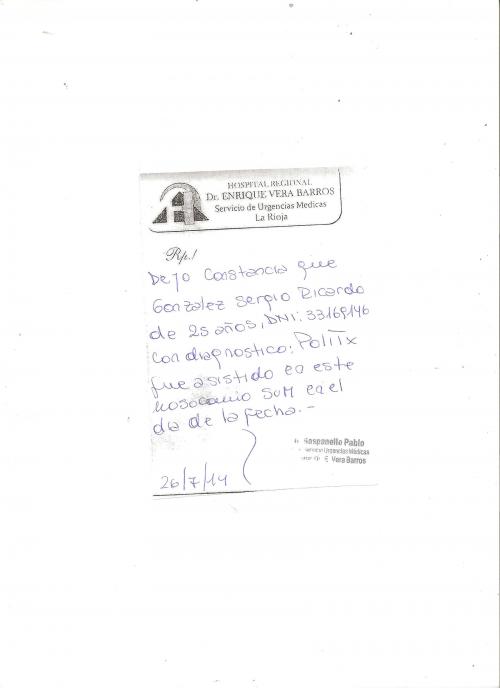 HOSPITAL REGIONAL
Dr. ENRIQUE VERA BARROS
Servicio de Urgencias Medicas
La Rioja
Rp./
Dejo Constancia que
Gonzalez Sergio Ricardo
de 25 años, DNI: 33169146
con diagnostico: PoliTx
fue asistido en este
nosocomio SUM en el
dia de la fecha.-
26/7/14
Gaspanello Pablo
Servicio Urgencias Médicas
E. Vera Barros